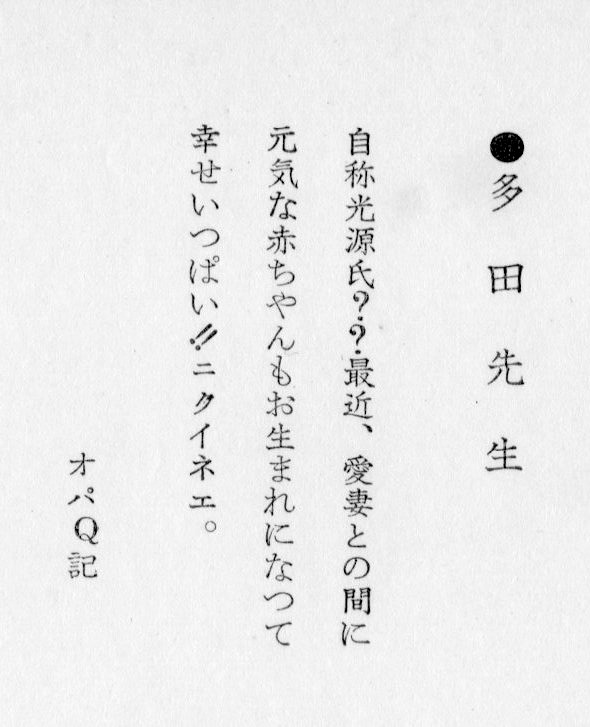 ●多田先生
自称光源氏??最近、愛妻との間に
元気な赤ちやんもお生まれになつて
幸せいつぱい!!ニクイネエ。
オパQ記